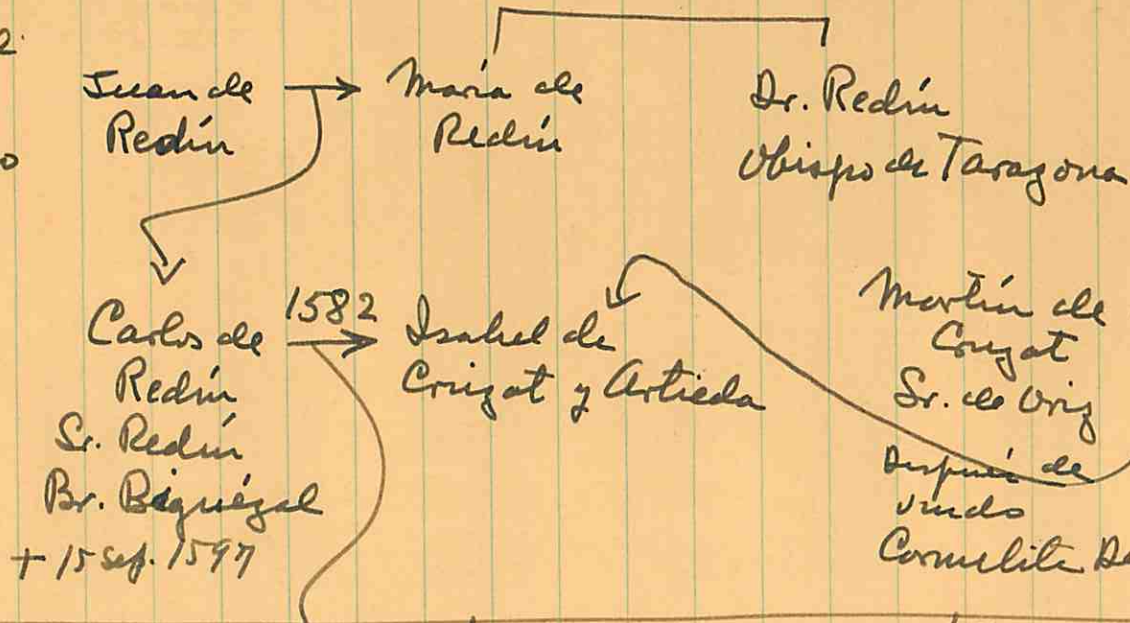 2.
o
Juan de
Redín
María de
Redín
Dr. Redín
Obispo de Tarazona
Carlos de
Redín
Sr. Redín
Br. Bigüézal
+ 15 Sep. 1597
1582
Isabel de
Cruzat y Artieda
Martín de
Cruzat
Sr. de Oriz
Después de
viudo
Carmelita De